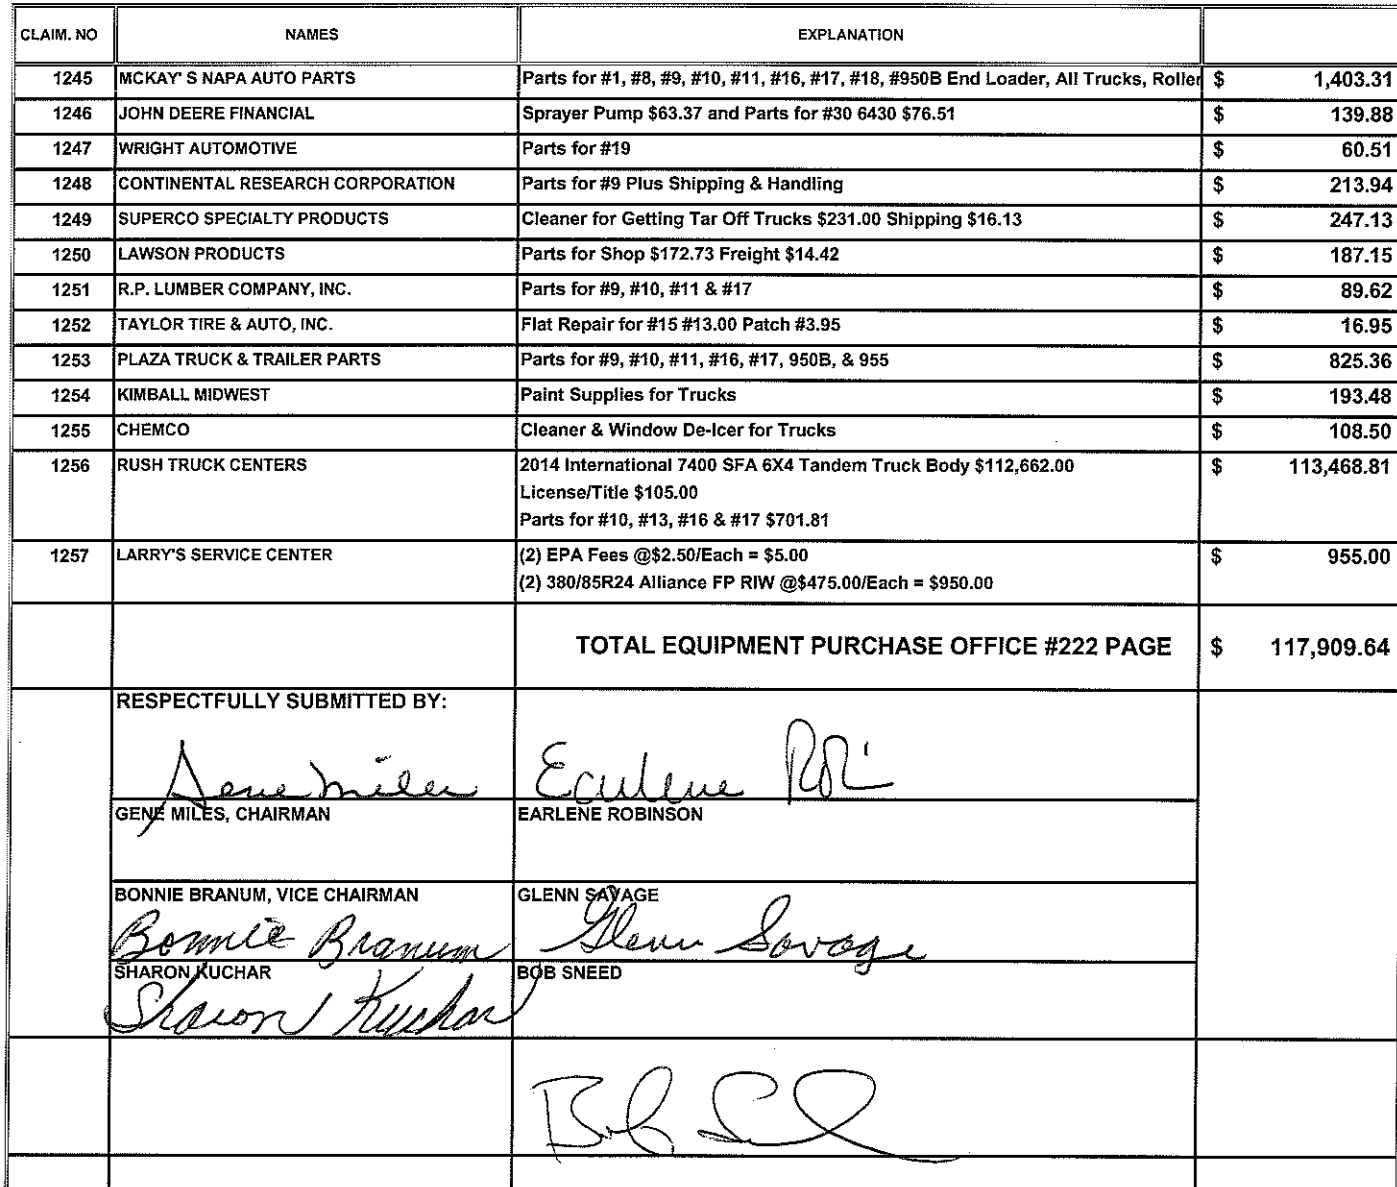 CLAIM. NO NAMES EXPLANATION
1245 MCKAY' S NAPA AUTO PARTS Parts for #1, #8, #9, #10, #11, #16, #17, #18, #950B End Loader, All Trucks, Roller $ 1,403.31
1246 JOHN DEERE FINANCIAL Sprayer Pump $63.37 and Parts for #30 6430 $76.51 $ 139.88
1247 WRIGHT AUTOMOTIVE Parts for #19 $ 60.51
1248 CONTINENTAL RESEARCH CORPORATION Parts for #9 Plus Shipping & Handling $ 213.94
1249 SUPERCO SPECIALTY PRODUCTS Cleaner for Getting Tar Off Trucks $231.00 Shipping $16.13 $ 247.13
1250 LAWSON PRODUCTS Parts for Shop $172.73 Freight $14.42 $ 187.15
1251 R.P. LUMBER COMPANY, INC. Parts for #9, #10, #11 & #17 $ 89.62
1252 TAYLOR TIRE & AUTO, INC. Flat Repair for #15 #13.00 Patch #3.95 $ 16.95
1253 PLAZA TRUCK & TRAILER PARTS Parts for #9, #10, #11, #16, #17, 950B, & 955 $ 825.36
1254 KIMBALL MIDWEST Paint Supplies for Trucks $ 193.48
1255 CHEMCO Cleaner & Window De-Icer for Trucks $ 108.50
1256 RUSH TRUCK CENTERS 2014 International 7400 SFA 6X4 Tandem Truck Body $112,662.00 $ 113,468.81
License/Title $105.00
Parts for #10, #13, #16 & #17 $701.81
1257 LARRY'S SERVICE CENTER (2) EPA Fees @$2.50/Each = $5.00 $ 955.00
(2) 380/85R24 Alliance FP RIW @$475.00/Each = $950.00
TOTAL EQUIPMENT PURCHASE OFFICE #222 PAGE $ 117,909.64
RESPECTFULLY SUBMITTED BY:
Gene Miles Earlene
GENE MILES, CHAIRMAN EARLENE ROBINSON
BONNIE BRANUM, VICE CHAIRMAN GLENN SAVAGE
Bonnie Branum Glenn Savage
SHARON KUCHAR BOB SNEED
Sharon Kuchar
Bob